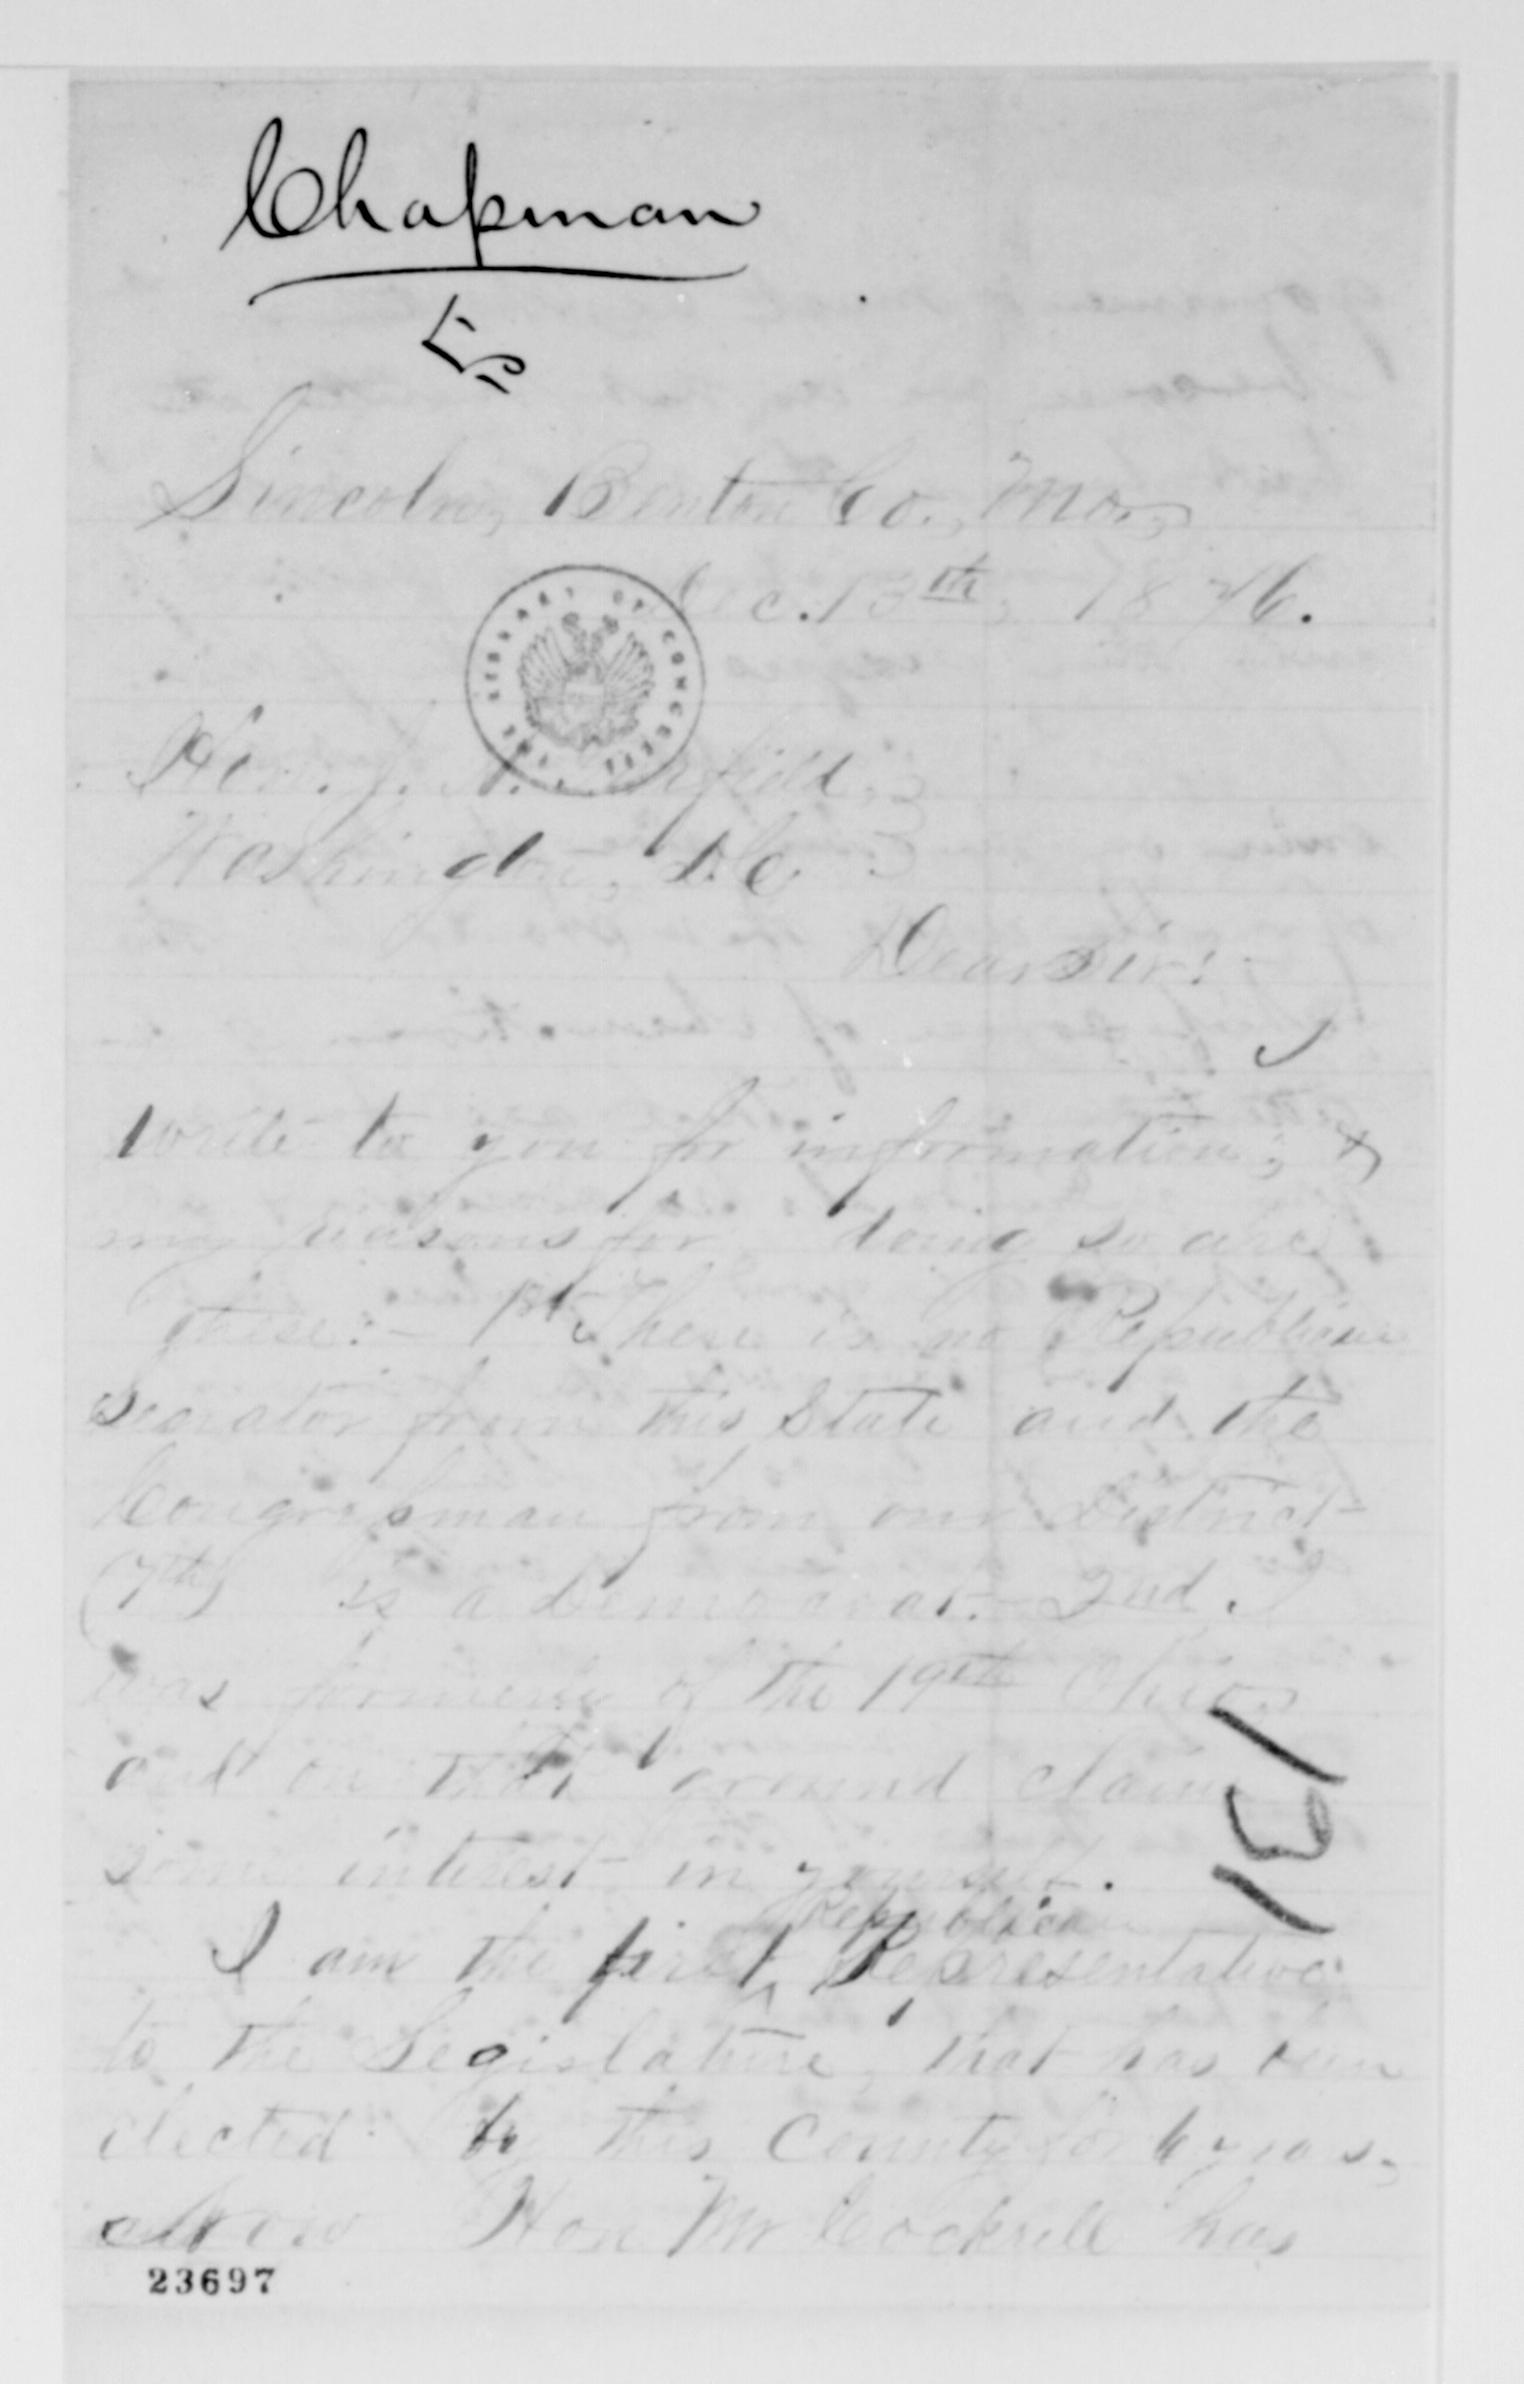 Chapman
Lincoln, Benton Co., Mo.,
Dec. 13th, 1876.
THE LIBRARY OF CONGRESS
Hon. J. A. Garfield,
Washington, D.C.
Dear Sir:
I
write to you for information; &
my reasons for doing so are
these:- 1st There is no Republican
Senator from this State and the
Congressman from our District
(7th) is a Democrat. 2nd. I
was formerly of the 19th Ohio
and on that ground claim
some interest in yourself.
Republican
I am the first Representative
to the Legislature, that has been
elected by this County for 6 years,
Now Hon Mr Cockrell has
131
23697